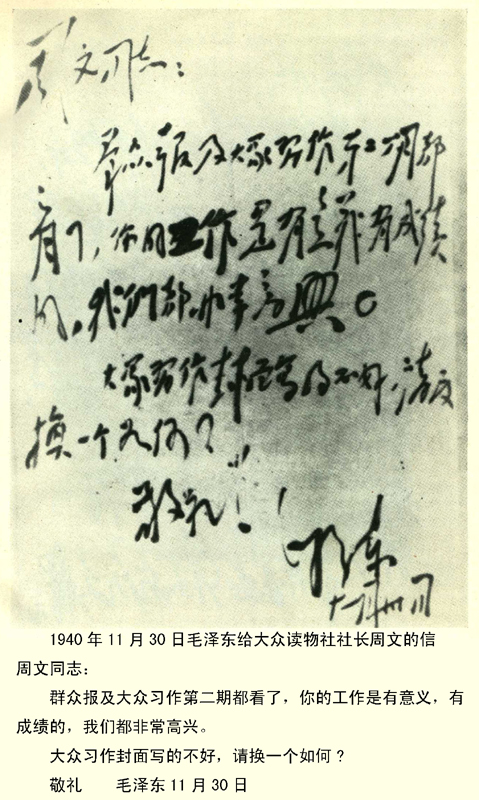 周文同志：
群众报及大众习作第二期都
看了，你的工作是有意义有成绩
的，我们都非常高兴。
大众习作封面写的不好，请
换一个如何？
敬礼！
毛泽东
十一月卅日
1940年11月30日毛泽东给大众读物社社长周文的信
周文同志：
群众报及大众习作第二期都看了，你的工作是有意义，有
成绩的，我们都非常高兴。
大众习作封面写的不好，请换一个如何？
敬礼 毛泽东11月30日